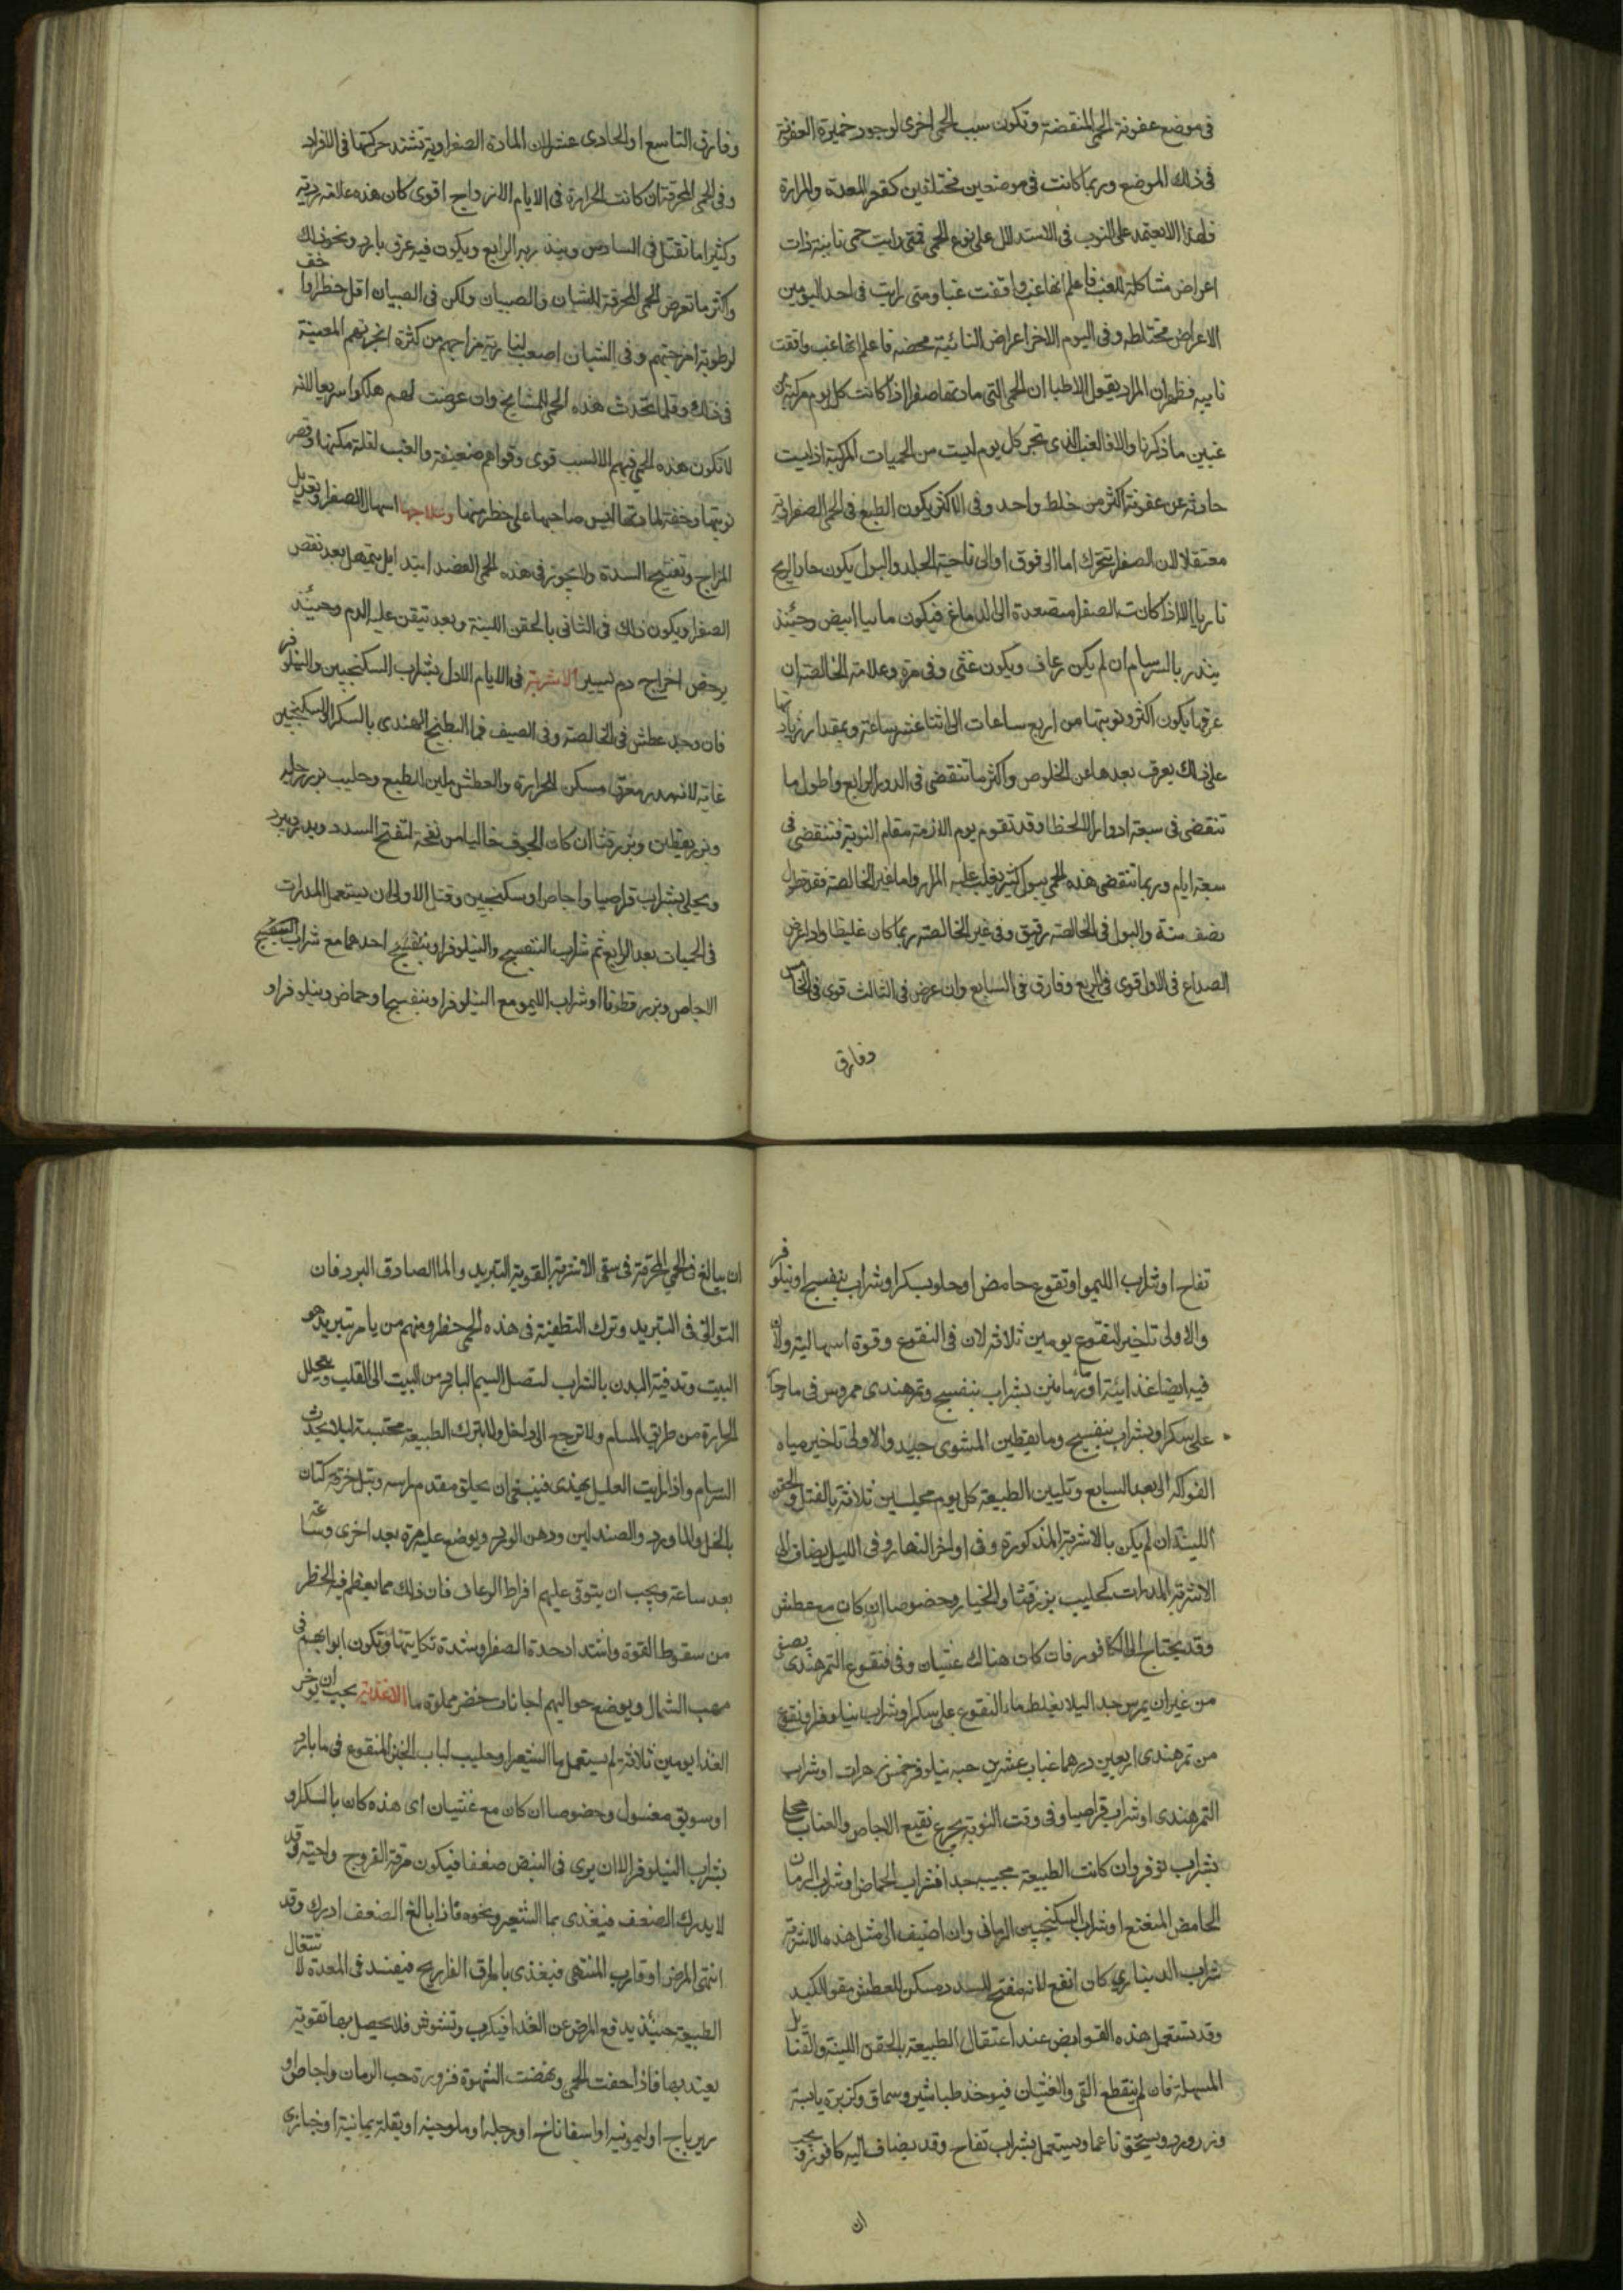 فى موضع عفونة الحمى المنقضة وتكون سبب الحمى اخرى لوجود خميرة العفونة
فى ذلك الموضع وربما كانت فى موضعين مختلفين كقعر المعدة والمرارة
فلهذا لا نعتمد على النوب فى الاستدلال على نوع الحمى فمتى رايت حمى نايبة ذات
اعراض مشاكلة للغب فاعلم انها غب وافقت غبا ومتى رايت فى احد اليومين
الاعراض مختلطه وفى اليوم الاخر اعراض النائبة محضه فاعلم انها غب وافقت
نايبه فظهر ان المراد بقول الاطبا ان الحمى التى مادتها صفرا اذا كانت كل يوم مركبة من
غبين ما ذكرنا والا فالغب الذى تجى كل يوم ليست من الحميات المركبة اذ ليست
حادثه عن عفونة اكثر من خلط واحد وفى الاكثر يكون الطبع فى الحمى الصفراوية
معتقلا لان الصفرا تتحرك اما الى فوق او الى ناحية الجلد والبول يكون حاد الريح
ناريا الا اذا كانت الصفرا متصعدة الى الدماغ فيكون مائيا ابيض وحينئذ
ينذر بالسرسام ان لم يكن رعاف ويكون غثى وفى مرة وعلامة الخالصة ان
عرقها يكون اكثر ونوبتها من اربع ساعات الى اثنتا عشر ساعة وبمقدار زيادتها
على ذلك يعرف بعدها عن الخلوص واكثر ما تنقضى فى الدور الرابع واطول ما
تنقضى فى سبعة ادوار الا لخطا وقد تقوم يوم اللازمة مقام النوبة فتنقضى فى
سبعة ايام وربما تنقضى هذه الحمى ببول كثير يغلب عليه المرار واما غير الخالصة فقد تطول
نصف سنة والبول فى الخالصة رقيق وفى غير الخالصة ربما كان غليظا واذا عرض
الصداع فى الاول قوى فى الربع وفارق فى السابع وان عرض فى الثالث قوى فى الخامس
وفارق
وفارق التاسع او الحادى عشر لان المادة الصفراوية تشتد حركتها فى الافراد
وفى الحمى المحرقة ان كانت الحرارة فى الايام الازواج اقوى كان هذه علامة ردية
وكثيرا ما تقتل فى السادس وينذر به الرابع ويكون فيه عرق بارد ونحو ذلك
واكثر ما تعرض الحمى المحرقة للشبان والصبيان ولكن فى الصبيان اقل خطرا واخف
لرطوبة امزجتهم وفى الشبان اصعب لنارية مزاجهم من كثرة ابخرتهم المعينة
فى ذلك وقلما تحدث هذه الحمى للمشايخ وان عرضت لهم هلكوا سريعا لانه
لا تكون هذه الحمى فيهم الا لسبب قوى وقواهم ضعيفة والغب لقلة مكثها وقصر
نوبتها وخفة مادتها ليس صاحبها على خطر منها وعلاجها اسهال الصفرا وتعديل
المزاج وتفتيح السدة ولا يجوز فى هذه الحمى الفصد ابتدا بل يتمهل بعد نقص
الصفرا ويكون ذلك فى الثانى بالحقن اللينة وبعد تيقن غلبة الدم وحينئذ
يرخص اخراج دم يسير الاشربة فى الايام الاول بشراب السكنجبين والنيلوفر
فان وجد عطش فى الخالصة وفى الصيف فما البطيخ الهندى بالسكر او السكنجبين
غاية لانه مدر معرق مسكن للحرارة والعطش ملين الطبع وحليب بزر رجله
وبزر يقطين وبزر قثا ان كان الجوف خاليا من نفخة لتفتح السدد ويدر ويبرد
ويحلى بشراب قراصيا واجاص او سكنجبين وقيل الاولى ان يستعمل المدرات
فى الحميات بعد الرابع ثم شراب البنفسج والنيلوفر او بنفسج احدهما مع شراب البنفسج
الاجاص وبزر قطونا او شراب الليمو مع النيلوفر او بنفسج او حماض ونيلوفر او
تفاح او شراب الليمو او نقوع حامض او حلو بسكر او شراب بنفسج او نيلوفر
والاولى تاخير النقوع يومين ثلاثه لان فى النقوع وقوة اسهالية ولان
فيه ايضا غذائية او ما رمانين بشراب بنفسج وتمرهندى ممروس فى ما حار
على سكر او بشراب بنفسج وما يقطين المشوى جيد والاولى تاخير مياه
الفواكه الى بعد السابع وتليين الطبيعة كل يوم مجلسين ثلاثة بالفتل والحقن
اللينة ان لم يكن بالاشربة المذكورة وفى اواخر النهار وفى الليل يضاف الى
الاشربة المدرات كحليب بزر قثا والخيار وخصوصا ان كان مع عطش
وقد يحتاج الى الكافور فان كان هناك غثيان وفى فنقوع التمرهندى يصفى
من غير ان يمرس جدا ليلا يغلظ ماء النقوع على سكر او شراب نيلوفر او نقوع
من تمرهندى اربعين درهما عناب عشرين حبه نيلوفر خمس زهرات او شراب
التمرهندى او شراب قراصيا وفى وقت النوبة يجرع نقيع الاجاص والعناب محلا
بشراب نوفر وان كانت الطبيعة مجيبه جدا فشراب الحماض او شراب الرمان
الحامض المنعنع او شراب السكنجبين الرمانى وان اضيف الى مثل هذه الاشربة
شراب الدينارى كان انفع لانه مفتح للسدد مسكن للعطش مقو للكبد
وقد تستعمل هذه القوابض عند اعتقال الطبيعة بالحقن اللينة والفتايل
المسهلة فان لم ينقطع القى والغثيان فيوخذ طباشير وسماق وكزبرة يابسة
وزر ورد ويسحق ناعما ويستعمل بشراب تفاح وقد يضاف اليه كافور ويجب
ان
ان يبالغ فى الحمى المحرقة فى سقى الاشربة القوية التبريد والما الصادق البرد فان
التوانى فى التبريد وترك التطفئة فى هذه الحمى خطر ومنهم من يامر بتبريد هو
البيت وتدفية البدن بالثياب ليتصل النسيم البارد من البيت الى القلب ويتحلل
الحرارة من طريق المسام ولا ترجع الى داخل ولا يترك الطبيعة محتبسة ليلا يحدث
السرسام واذا رايت العليل يهذى فينبغى ان يحلق مقدم راسه وتبل خرقة كتان
بالخل والماورد والصندلين ودهن الورد ويوضع عليه مرة بعد اخرى وساعة
بعد ساعة ويجب ان يتوقى عليهم افراط الرعاف فان ذلك مما يعظم فيه الخطر
من سقوط القوة واشتداد حدة الصفرا وشدة نكايتها وتكون ابوابهم فى
مهب الشمال ويوضع حواليهم اجانات خضر مملوة ما الاغذية يجب ان يوخر
الغذا يومين ثلاثة ثم يستعمل ما الشعير او حليب لباب الخبز المنقوع فى ما بارد
او سويق مغسول وخصوصا ان كان مع غثيان اى هذه كان بالسكر او
بشراب النيلوفر الا ان يرى فى النبض ضعفا فيكون مرقة الفروج واجبة وقد
لا يدرك الضعف فيغذى بما الشعير ونحوه فاذا بالغ الضعف ادرك وقد
انتهى المرض او قارب المنتهى فيغذى بامراق الفراريج فيفسد فى المعدة لاشتغال
الطبيعة حينئذ بدفع المرض عن الغذا فيكرب وتشوش فلا يحصل بها تقوية
يعتد بها فاذا خفت الحمى ونهضت الشهوة فزورة حب الرمان واجاص او
زيرباج او ليمونيه او اسفاناخ او رجله او ملوخيه او بقلة يمانية او خبازى